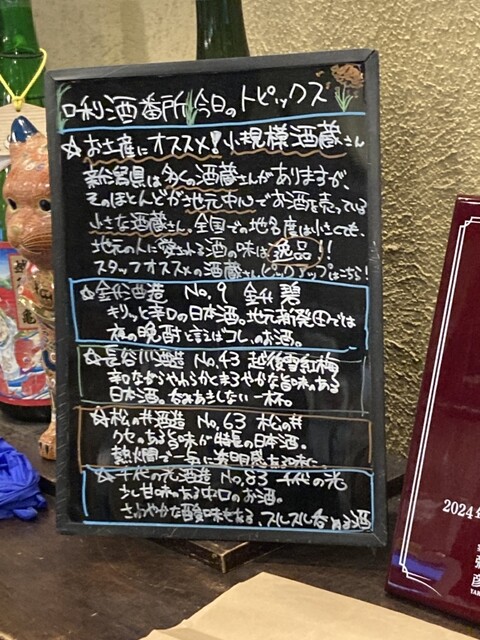 唎酒番所 今日のトピックス
☆お土産にオススメ!小規模酒蔵さん
新潟県は多くの酒蔵さんがありますが、
そのほとんどが地元中心でお酒を売っている
小さな酒蔵さん。全国での知名度は小さくても、
地元の人に愛される酒の味は逸品!!
スタッフオススメの酒蔵さんピックアップはこちら!
☆金升酒造 No.9 金升 碧
キリッと辛口の日本酒。地元新発田では
夜の晩酌と言えばコレ、のお酒。
☆長谷川酒造 No.43 越後雪紅梅
辛口ながらやわらかとまろやかな旨味のある
日本酒。のみあきしない一杯。
☆松の井酒造 No.63 松の井
クセのある旨味が特長の日本酒。
熱燗で一気に透明感ある味に。
☆千代の光酒造 No.83 千代の光
少し甘味のある中口のお酒。
さわやかな酸味もある、スルスル呑める酒
2024年
彦